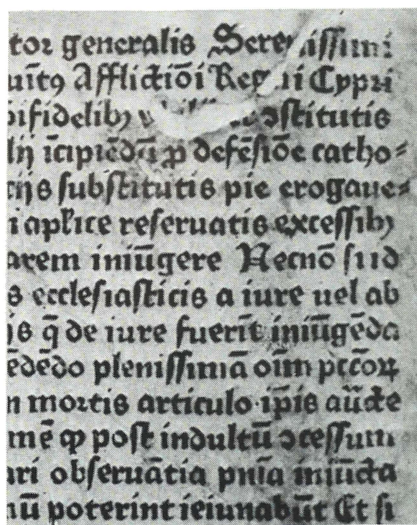 tor generalis Serenissimi
uīt9 Afflictiōi Regni Cypri
pifidelibꝫ ꝯstitutis
lij īcipiēdū ꝑ defēsiōe catho⸗
cijs substitutis pie erogaue⸗
i apl̄ice reseruatis excessibꝫ
arem iniūgere Necnō siid
s ecclesiasticis a iure uel ab
is q̄ de iure fuerīt iniūgēda
ēdēdo plenissimā oīm pccōꝝ
n mortis articulo ip̄is auc̄te
mē ꝙ post indultū ꝯcessum
ari obseruātia pn̄ia iniūcta
nū poterint ieiunabūt Et si